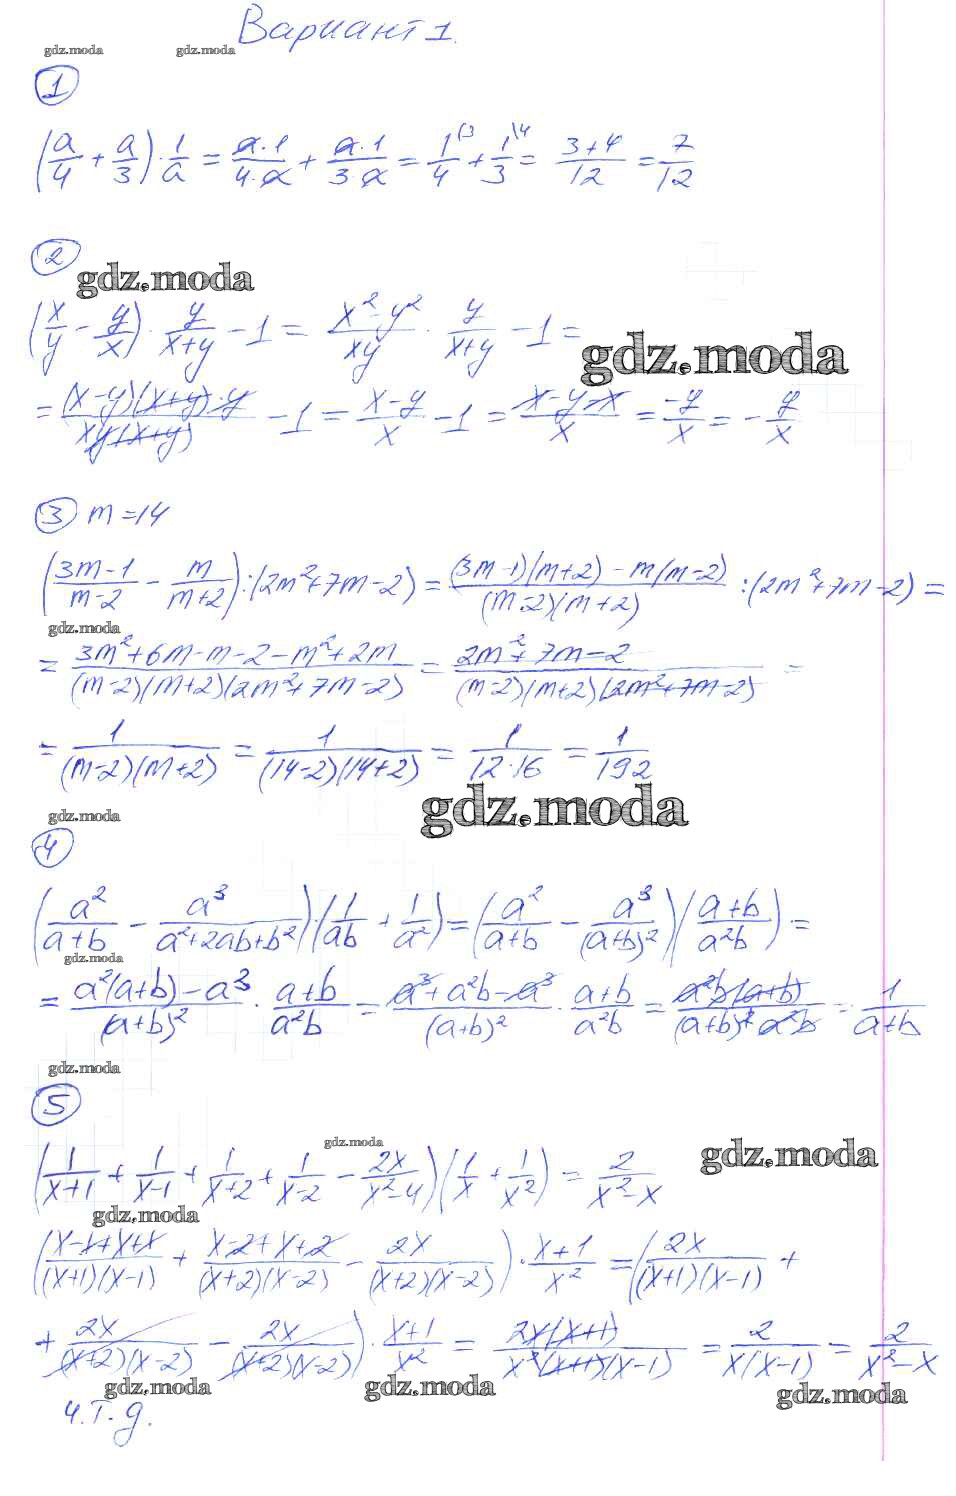 Вариант 1.
gdz.moda gdz.moda
1
(a/4 + a/3) · 1/a = a·1/4·a + a·1/3·a = 1/4 (3 + 1/3 \4 = 3+4/12 = 7/12
2
gdz.moda
(x/y − y/x) · y/x+y − 1 = x²−y²/xy · y/x+y − 1 =
gdz.moda
= (x−y)(x+y)·y/xy(x+y) − 1 = x−y/x − 1 = x−y−x/x = −y/x = − y/x
3 m=14
(3m−1/m−2 − m/m+2) : (2m²+7m−2) = (3m−1)(m+2)−m(m−2)/(m−2)(m+2) : (2m²+7m−2) =
gdz.moda
= 3m²+6m−m−2−m²+2m/(m−2)(m+2)(2m²+7m−2) = 2m²+7m−2/(m−2)(m+2)(2m²+7m−2) =
= 1/(m−2)(m+2) = 1/(14−2)(14+2) = 1/12·16 = 1/192
gdz.moda
gdz.moda
4
(a²/a+b − a³/a²+2ab+b²)·(1/ab + 1/a²) = (a²/a+b − a³/(a+b)²)(a+b/a²b) =
gdz.moda
= a²(a+b)−a³/(a+b)² · a+b/a²b = a³+a²b−a³/(a+b)² · a+b/a²b = a²b(a+b)/(a+b)² a²b = 1/a+b
gdz.moda
5
gdz.moda
gdz.moda
(1/x+1 + 1/x−1 + 1/x+2 + 1/x−2 − 2x/x²−4)(1/x + 1/x²) = 2/x²−x
gdz.moda
(x−1+x+x/(x+1)(x−1) + x−2+x+2/(x+2)(x−2) − 2x/(x+2)(x−2)) · x+1/x² = (2x/(x+1)(x−1) +
+ 2x/(x+2)(x−2) − 2x/(x+2)(x−2)) · x+1/x² = 2x(x+1)/x²(x+1)(x−1) = 2/x(x−1) = 2/x²−x
gdz.moda gdz.moda gdz.moda
ч.т.д.